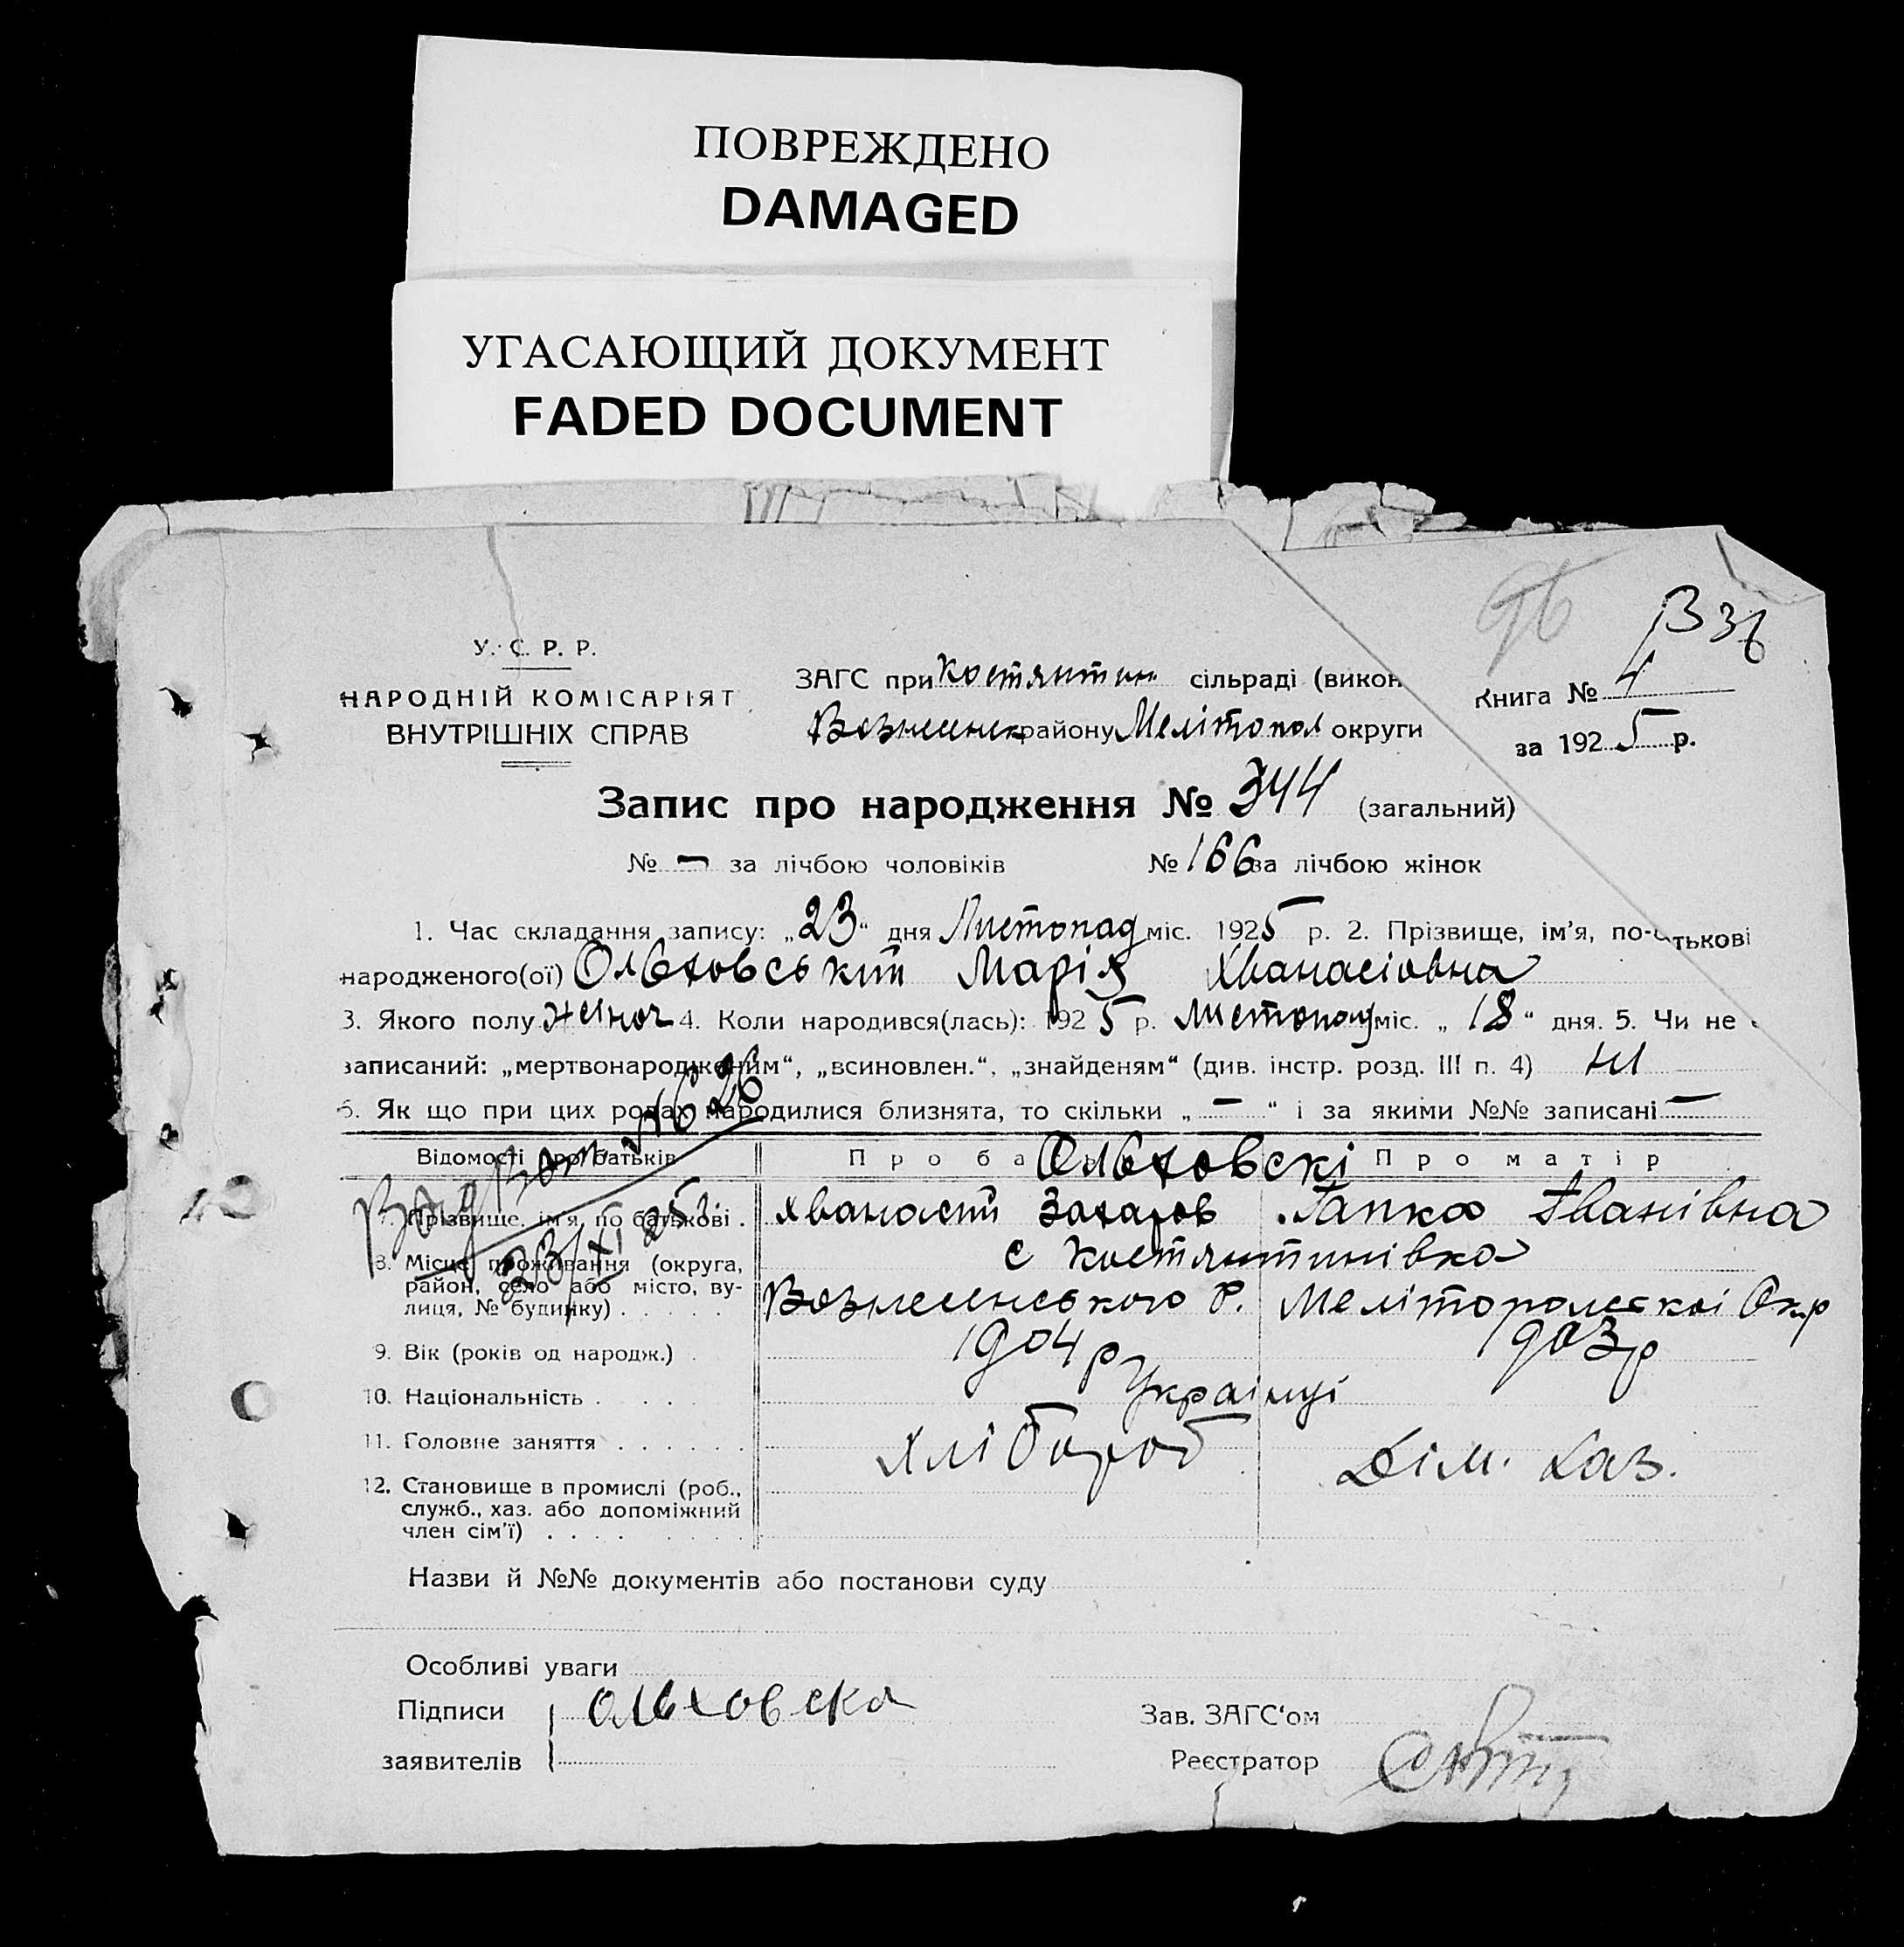 ПОВРЕЖДЕНО
DAMAGED
УГАСАЮЩИЙ ДОКУМЕНТ
FADED DOCUMENT
96
В 36
У. С. Р. Р.
НАРОДНІЙ КОМІСАРІЯТ
ВНУТРІШНІХ СПРАВ
ЗАГС при Костянтин сільраді (викон
Вознесенск району Мелітопол округи
Книга № 4
за 1925 р.
Запис про народження № 344 (загальний)
№ — за лічбою чоловіків № 166 за лічбою жінок
1. Час складання запису: „23“ дня Листопад міс. 1925 р. 2. Прізвище, ім'я, по-батькові
народженого(ої) Ольховський Марія Хванасіовна
3. Якого полу жіноч 4. Коли народився(лась): 1925 р. листопад міс. „18“ дня. 5. Чи не
записаний: „мертвонародженим“, „всиновлен.“, „знайденям“ (див. інстр. розд. III п. 4) ні
6. Як що при цих родах народилися близнята, то скільки „—“ і за якими №№ записані —
Відомості про батьків Про ба Ольховскі Про матір
7. Прізвище, ім'я, по батькові . Хванасий Захаров Гапка Іванівна
8. Місце проживання (округа, с Костянтинівка
район, село або місто, ву-
лиця, № будинку) . . . . . Вознесенського Р. Мелітопольскоі Окр
9. Вік (років од народж.) . 1904 р 903 р
10. Національність . . . . Украінці
11. Головне заняття . . . . . . Хлібороб Дім. Хаз.
12. Становище в промислі (роб.,
служб., хаз. або допоміжний
член сім'ї) . . . . . . . .
№ 626
23/XI 25
Назви й №№ документів або постанови суду
Особливі уваги
Підписи Ольховска
заявителів
Зав. ЗАГС'ом
Реєстратор